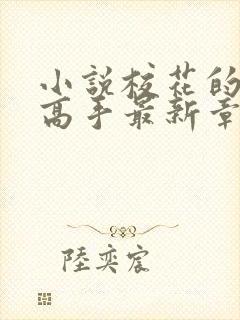 小説校花的
高手最新章
陸奕宸